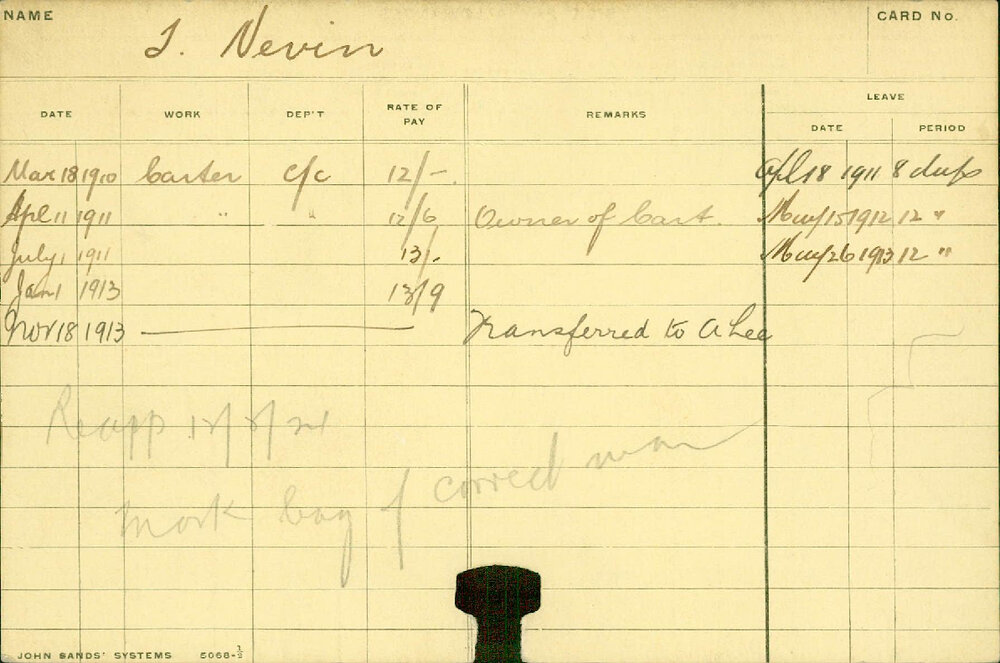 NAME CARD No.
J. Nevin
LEAVE
DATE WORK DEP'T RATE OF PAY REMARKS DATE PERIOD
Mar 18 1910 Carter c/c 12/-. Apl 18 1911 8 days
Apl 11 1911 " " 12/6 Owner of Cart. May 15 1912 12 "
July 1 1911 13/- May 26 1913 12 "
Jan 1 1913 13/9
Nov 18 1913 Transferred to A Lee
Reapp
of correct man
JOHN SANDS' SYSTEMS 5068-½